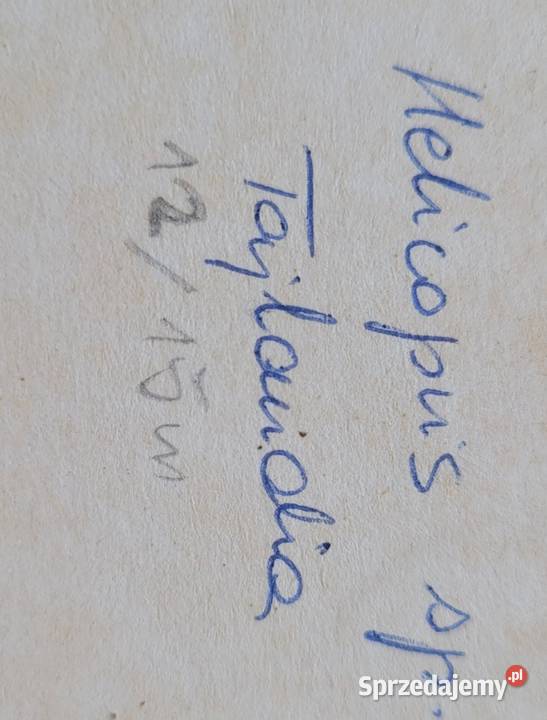 Helicopris sp.
Tajlandia
12/15m
Sprzedajemy.pl